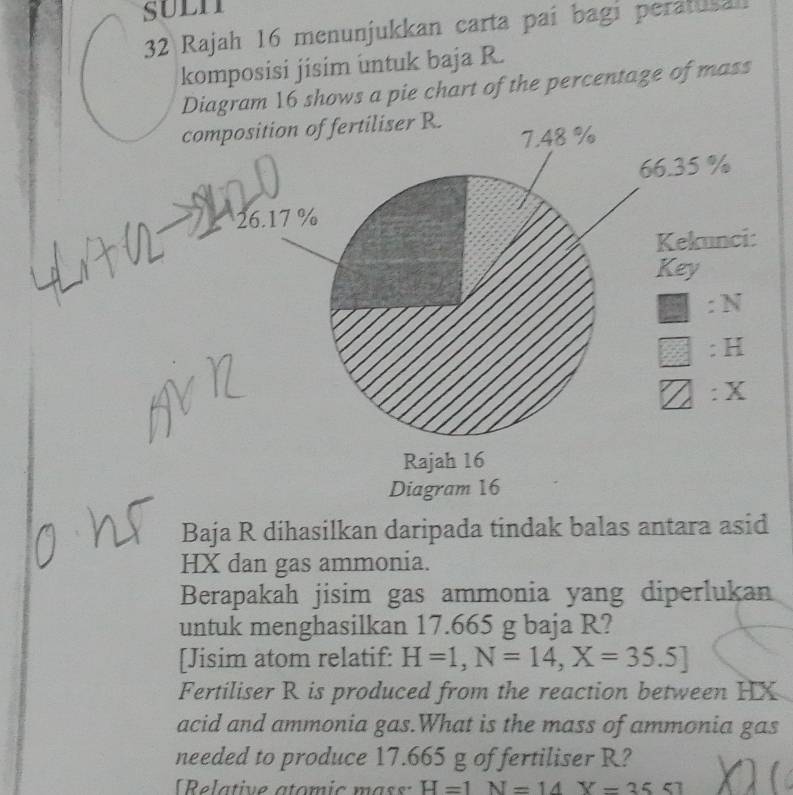 SULIT
32 Rajah 16 menunjukkan carta pai bagi peratusan
komposisi jisim untuk baja R.
Diagram 16 shows a pie chart of the percentage of mass
composition of fertiliser R.
7.48 %
66.35 %
26.17 %
Kekunci:
Key
: N
: H
: X
Rajah 16
Diagram 16
Baja R dihasilkan daripada tindak balas antara asid
HX dan gas ammonia.
Berapakah jisim gas ammonia yang diperlukan
untuk menghasilkan 17.665 g baja R?
[Jisim atom relatif: H =1, N = 14, X = 35.5]
Fertiliser R is produced from the reaction between HX
acid and ammonia gas.What is the mass of ammonia gas
needed to produce 17.665 g of fertiliser R?
[Relative atomic mass: H =1 N = 14 X = 35.5]